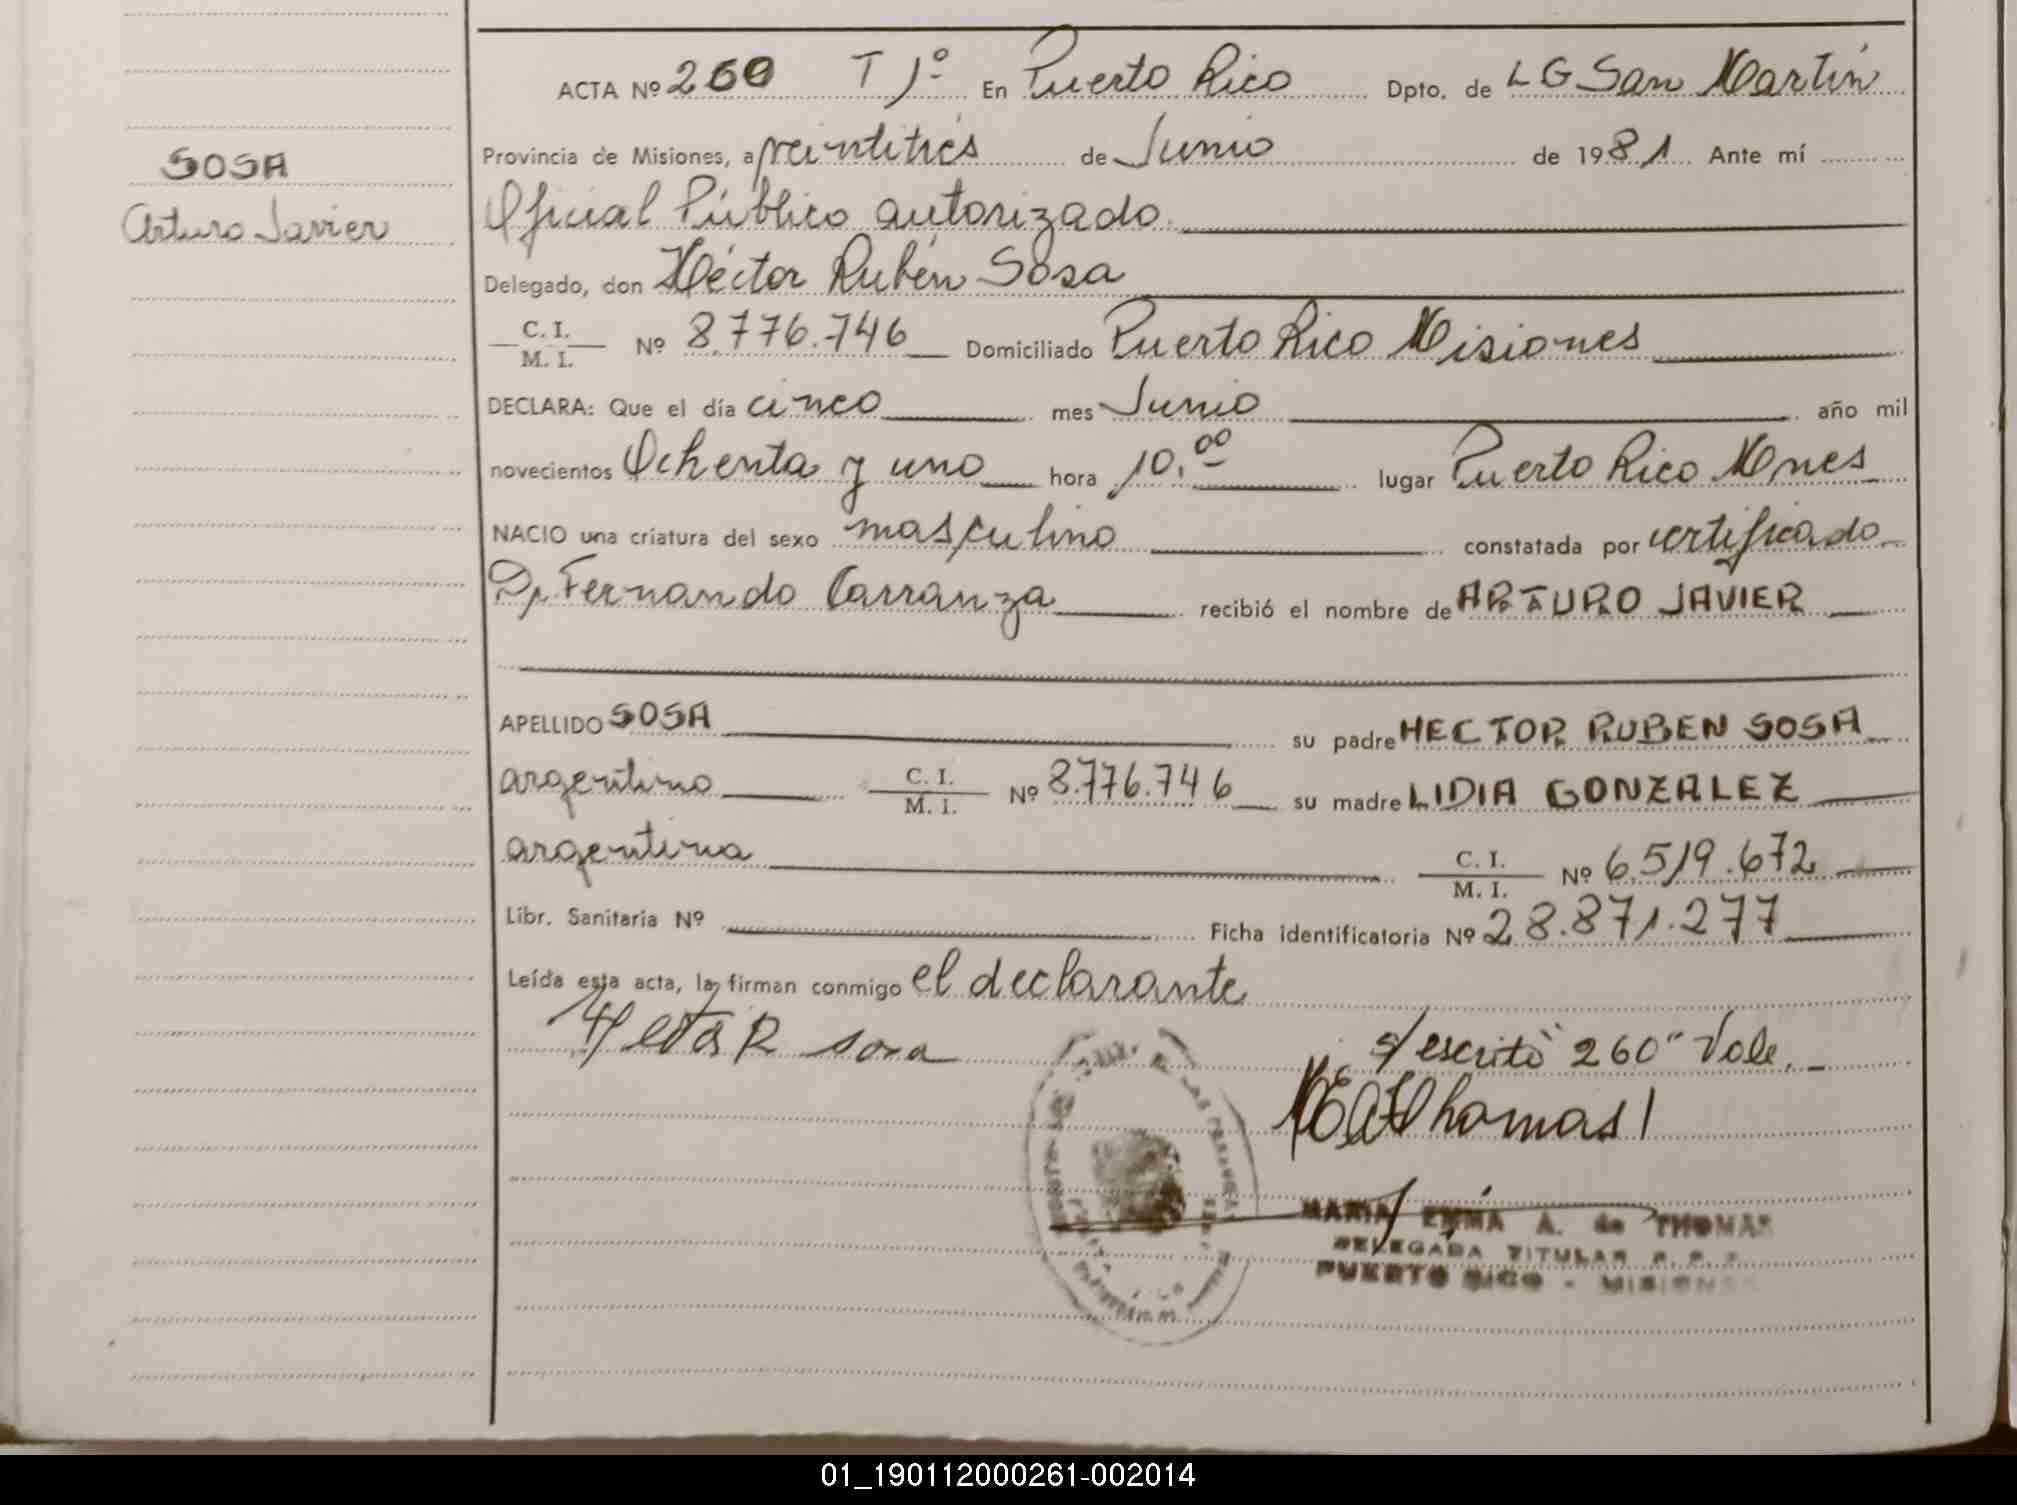 SOSA
Arturo Javier
ACTA Nº 260 T 1º En Puerto Rico Dpto. de L G San Martín
Provincia de Misiones, a veintitrés de Junio de 1981 Ante mí
Oficial Público autorizado.
Delegado, don Héctor Rubén Sosa
C. I. / M. I. Nº 8.776.746 Domiciliado Puerto Rico Misiones
DECLARA: Que el día cinco mes Junio año mil
novecientos Ochenta y uno hora 10,00 lugar Puerto Rico Mnes
NACIO una criatura del sexo masculino constatada por certificado
Dr. Fernando Carranza recibió el nombre de ARTURO JAVIER
APELLIDO SOSA su padre HECTOR RUBEN SOSA
argentino C. I. / M. I. Nº 8.776.746 su madre LIDIA GONZALEZ
argentina C. I. / M. I. Nº 6.519.672
Libr. Sanitaria Nº Ficha identificatoria Nº 28.871.277
Leída esta acta, la firman conmigo el declarante
Hector R sosa
s/escrito "260" Vale.
MEAThomas
MARIA EMMA A. de THOMAS
DELEGADA TITULAR R. P.
PUERTO RICO - MISIONES
01_190112000261-002014